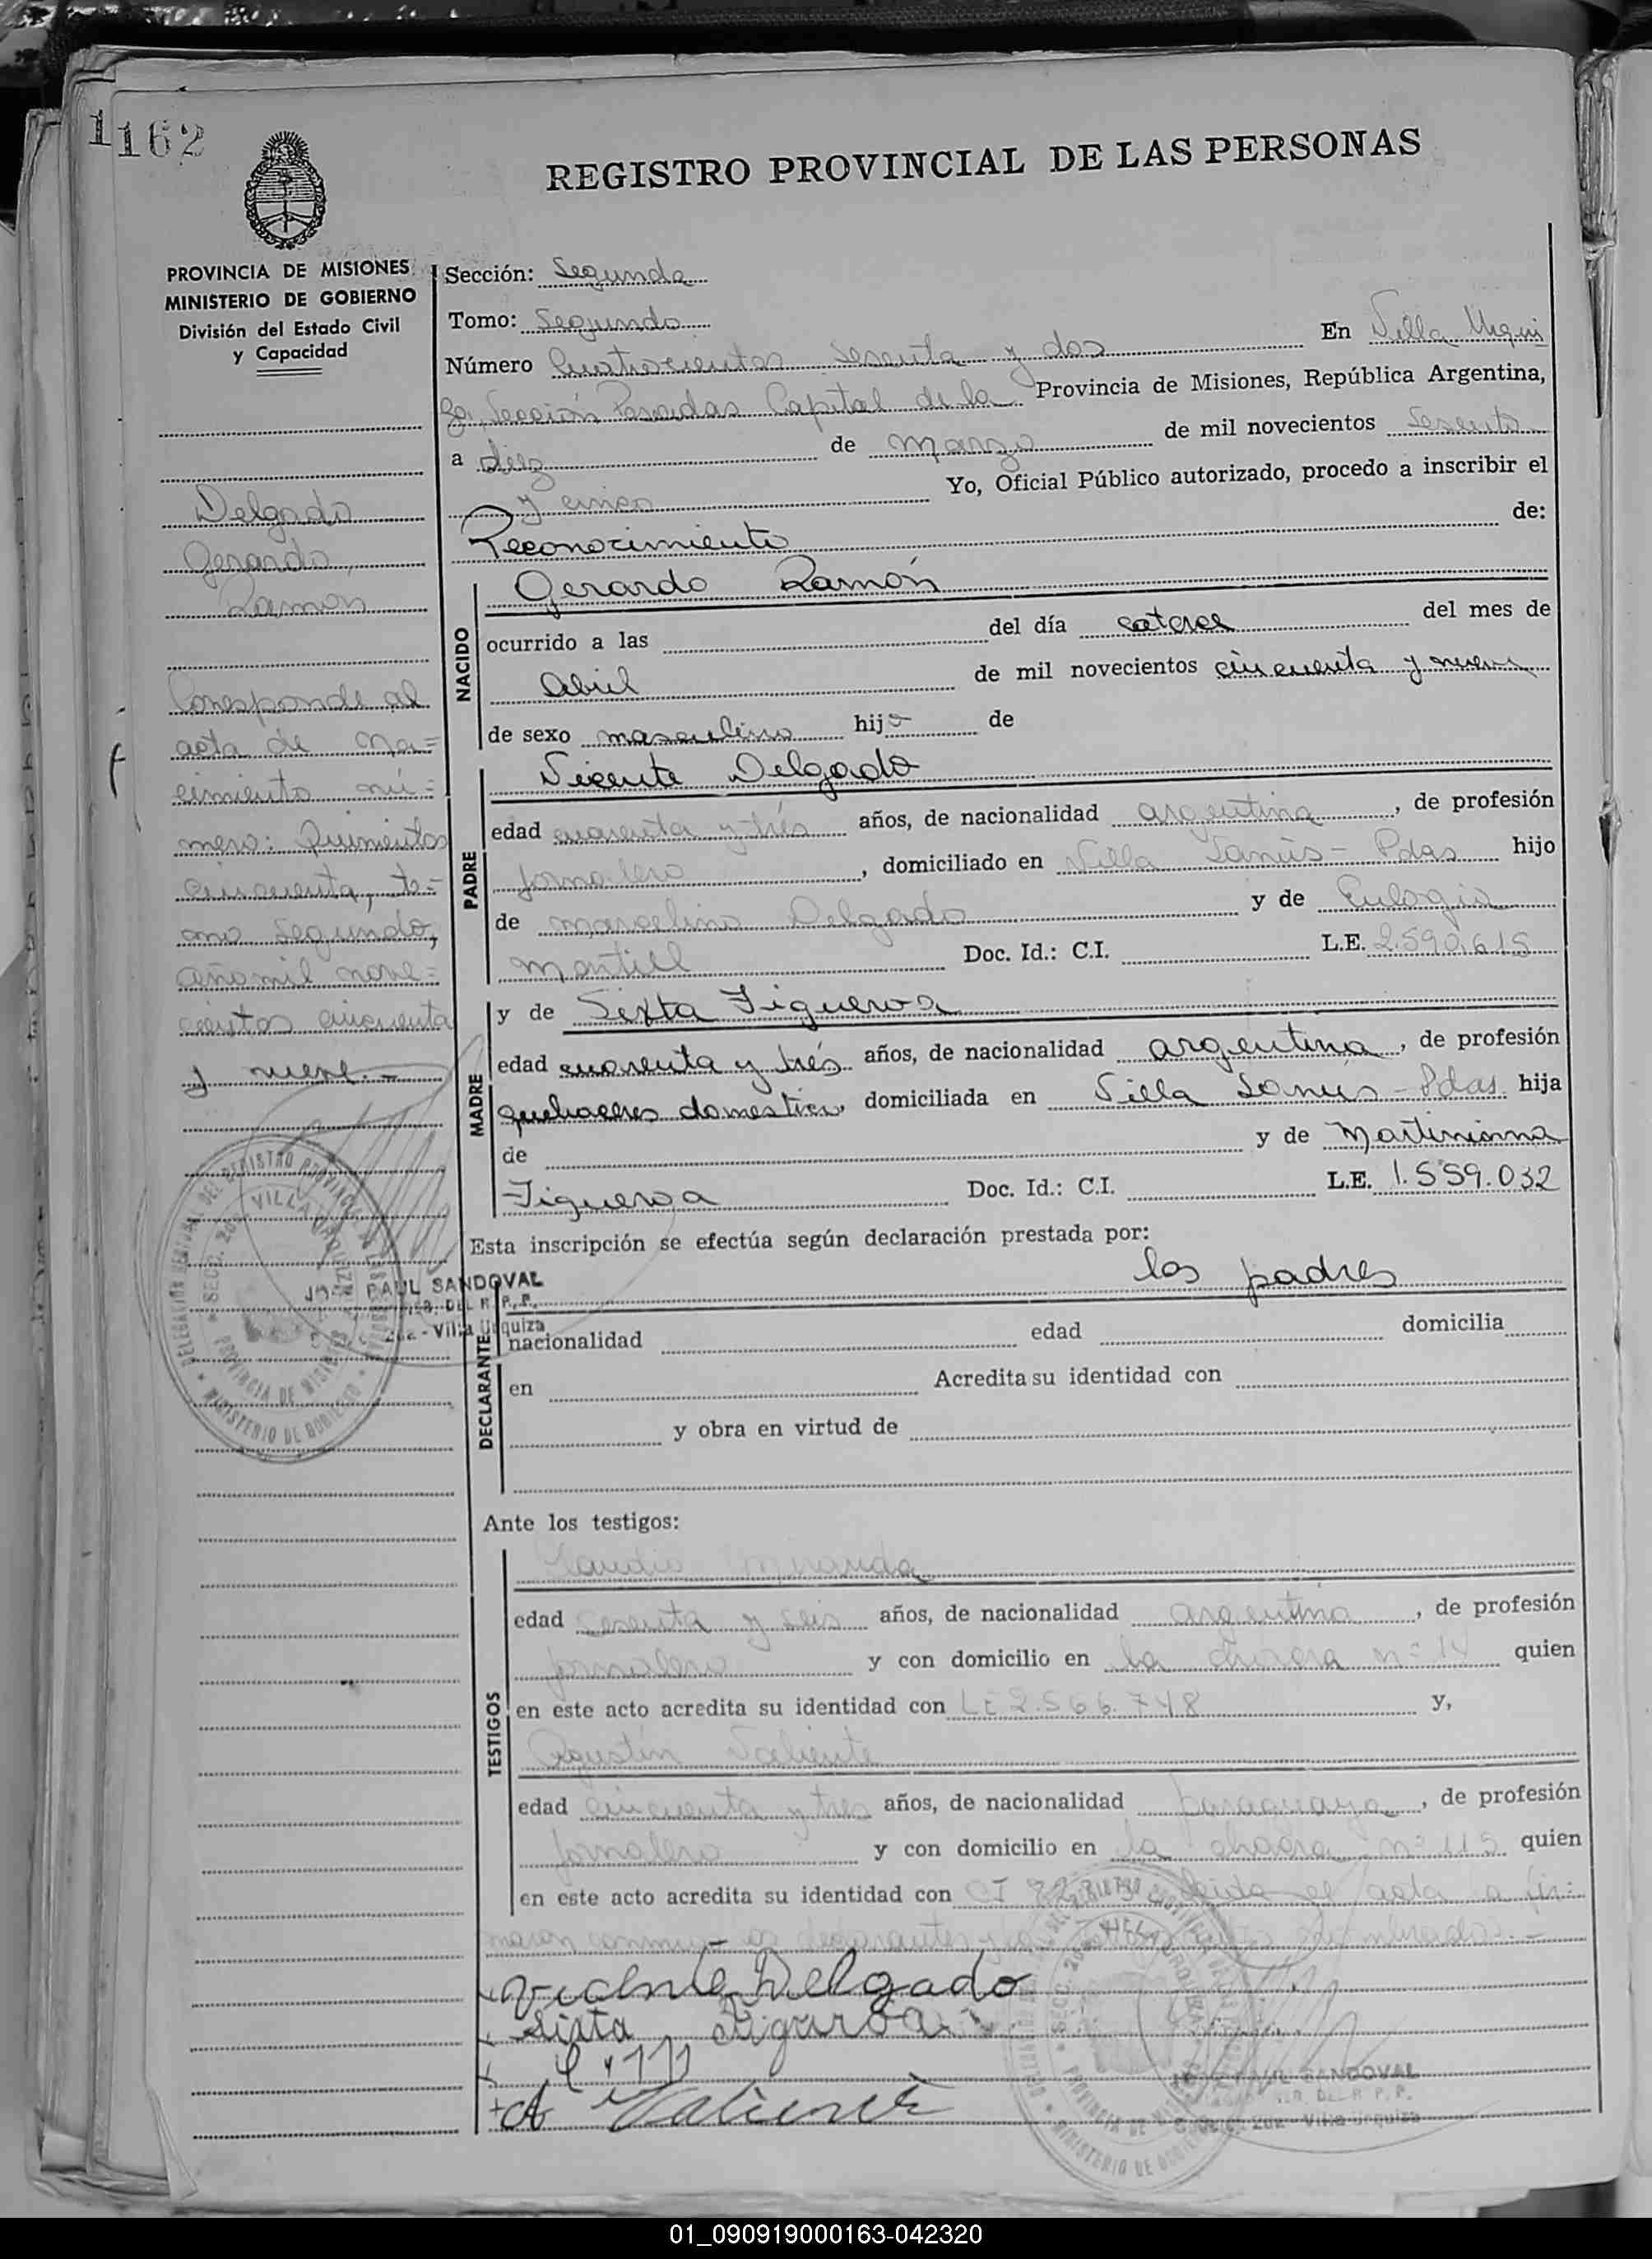 1162
REGISTRO PROVINCIAL DE LAS PERSONAS
PROVINCIA DE MISIONES
MINISTERIO DE GOBIERNO
División del Estado Civil
y Capacidad
Delgado
Gerardo
Ramon
Corresponde al
acta de na=
cimiento nú=
mero: Quinientos
cincuenta, to=
mo segundo,
año mil nove=
cientos cincuenta
y nueve.-
Sección: Segunda
Tomo: Segundo
Número Cuatrocientos sesenta y dos En Villa Urqui
za, Sección Posadas Capital de la Provincia de Misiones, República Argentina,
a diez de marzo de mil novecientos sesenta
y cinco Yo, Oficial Público autorizado, procedo a inscribir el
Reconocimiento de:
NACIDO
Gerardo Ramón
ocurrido a las del día catorce del mes de
Abril de mil novecientos cincuenta y nueve
de sexo masculino hijo de
PADRE
Vicente Delgado
edad cuarenta y trés años, de nacionalidad argentina, de profesión
jornalero, domiciliado en Villa Lanús - Pdas hijo
de Marcelino Delgado y de Eulogia
Montiel Doc. Id.: C.I. L.E. 2.590.615
MADRE
y de Sixta Figueroa
edad cuarenta y trés años, de nacionalidad argentina, de profesión
quehaceres domesticos domiciliada en Villa Lanús - Pdas hija
de y de Martiniana
Figueroa Doc. Id.: C.I. L.E. 1.559.032
Esta inscripción se efectúa según declaración prestada por:
los padres
PAUL SANDOVAL
DEL R. P. P.
2da - Villa Urquiza
DECLARANTE
nacionalidad edad domicilia
en Acredita su identidad con
y obra en virtud de
Ante los testigos:
TESTIGOS
Claudio Miranda
edad sesenta y seis años, de nacionalidad argentina, de profesión
jornalero y con domicilio en la chacra nº 14 quien
en este acto acredita su identidad con LE 2.566.748 y,
Agustín Valiente
edad cincuenta y tres años, de nacionalidad paraguaya, de profesión
jornalero y con domicilio en la chacra nº 115 quien
en este acto acredita su identidad con CI el acta la fir=
maron conmigo los declarantes y los testigos
Vicente Delgado
Sixta Figueroa
A Valiente
SANDOVAL
DEL R. P. P.
2da - Villa Urquiza
01_090919000163-042320